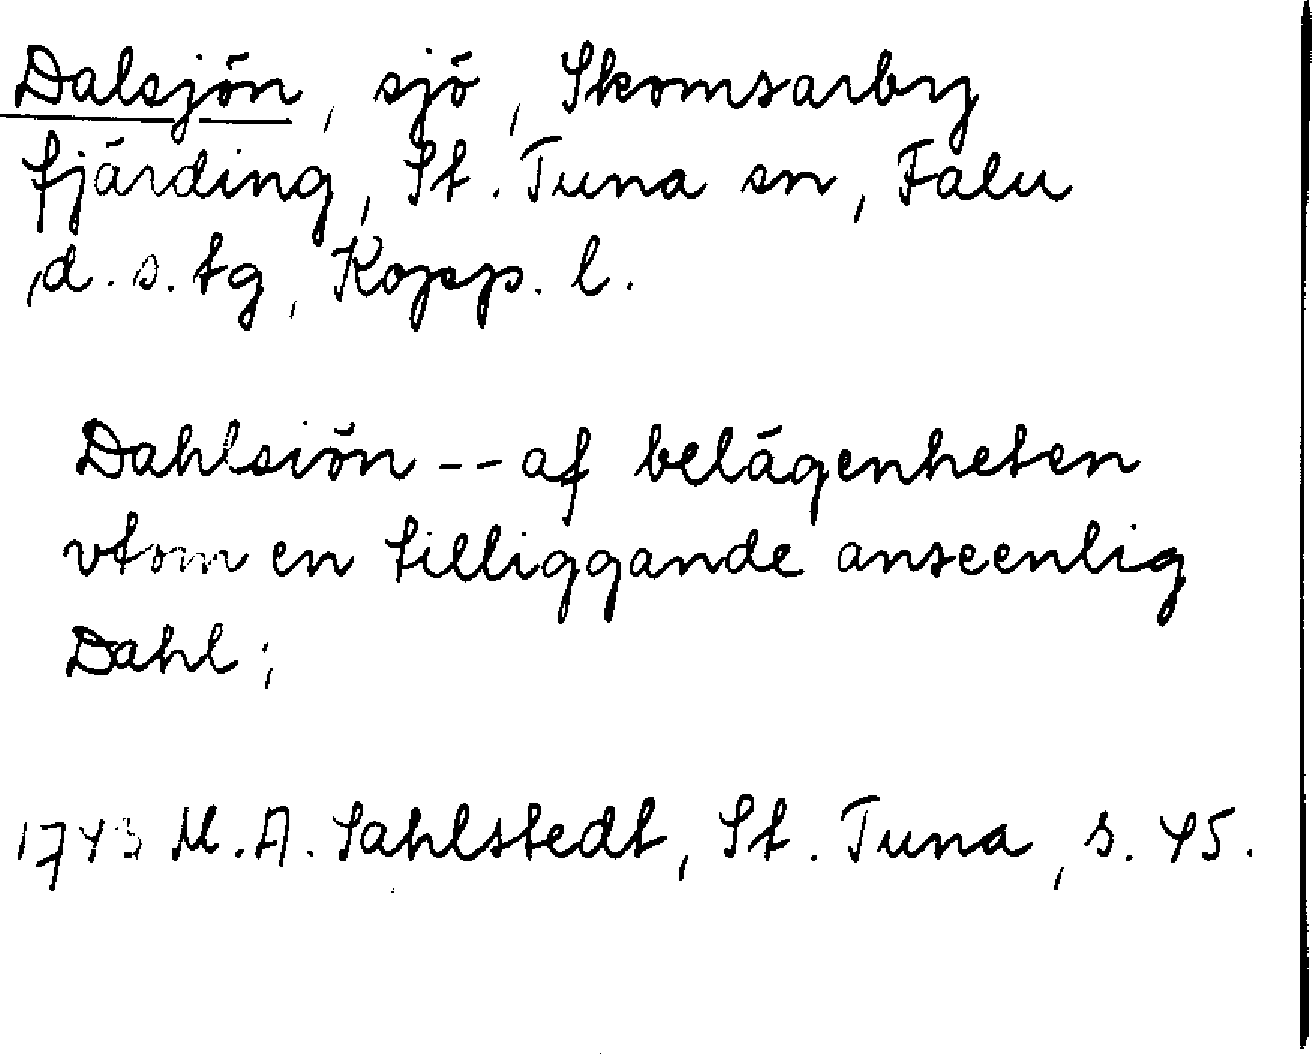 Dalsjön, sjö, Skomsarby
fjärding, St. Tuna sn, Falu
d.s.tg, Kopp. l.
Dahlsiön -- af belägenheten
vtom en tilliggande anseenlig
Dahl;
1743 M.A. Sahlstedt, St. Tuna, s. 45.